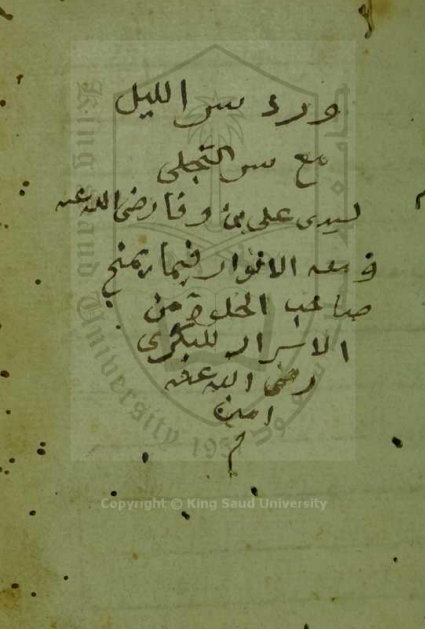 ورد سر الليل
مع سر التجلى
لسيدى على بن وفا رضى الله عنه
ومعه الاغوار فيما يمنح
صاحب الخلوة من
الاسرار للبكرى
رضى الله عنه
امين
م
King Saud University
1957
Copyright © King Saud University